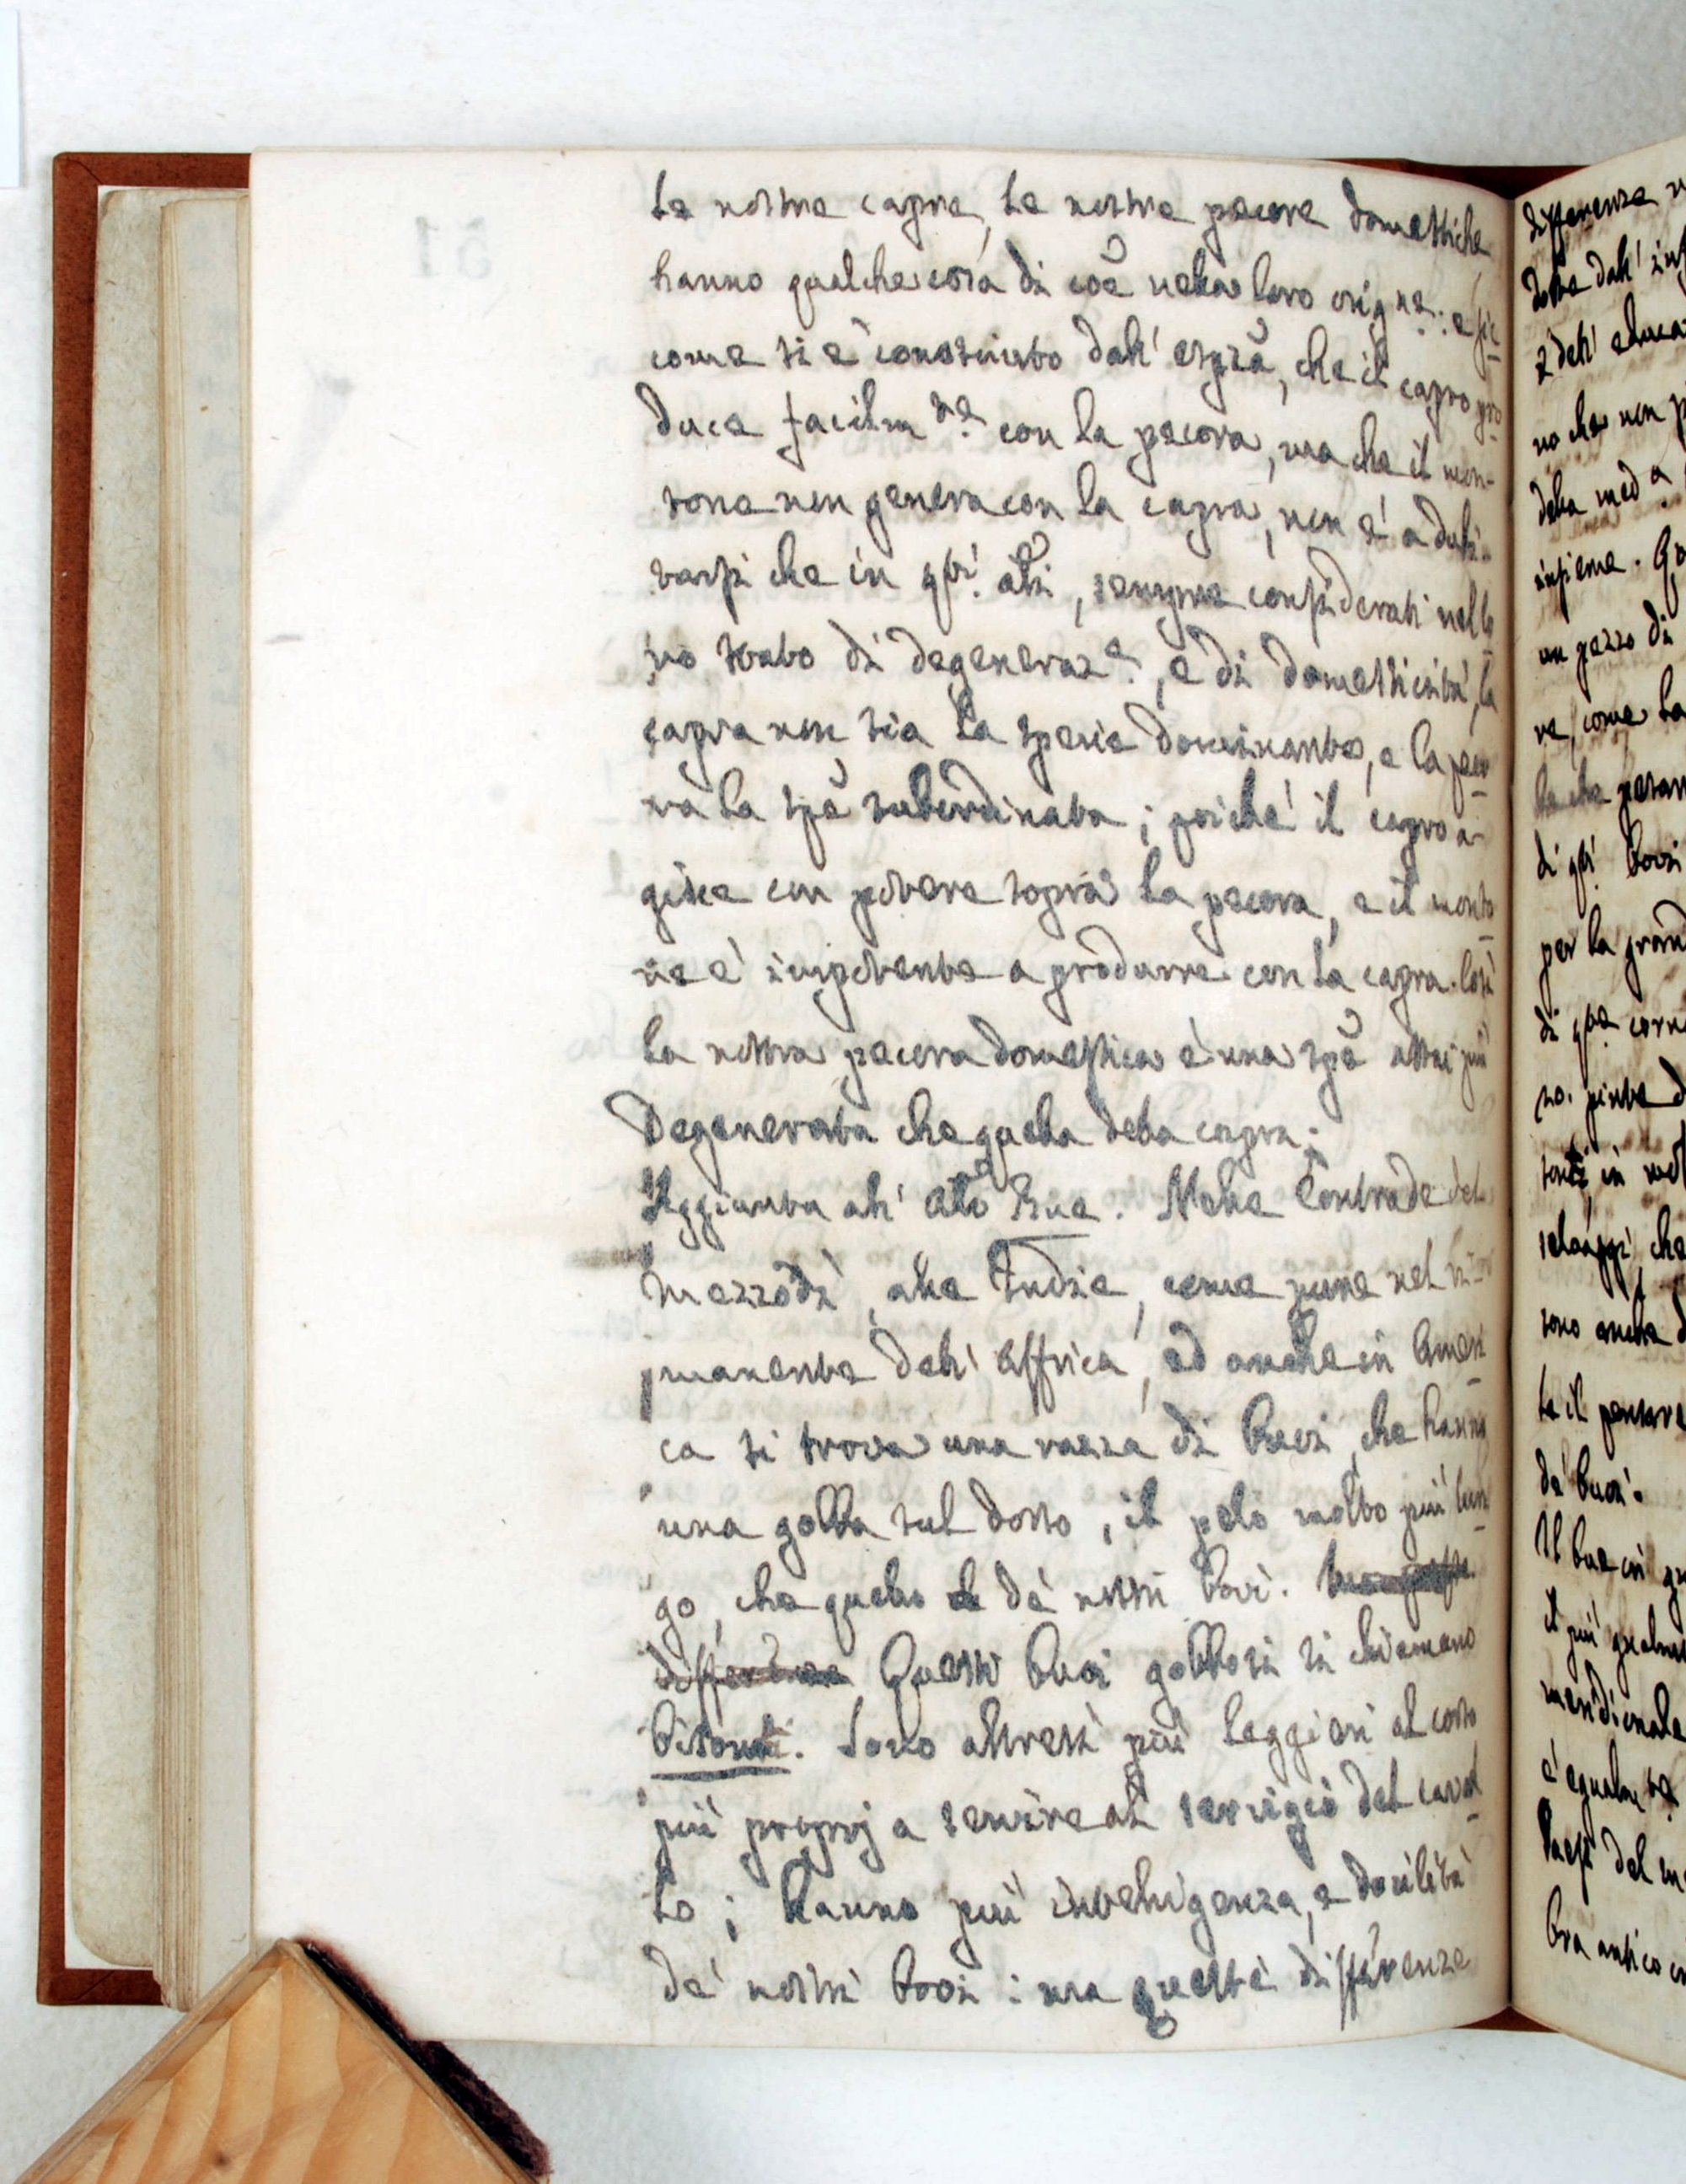 Le nostre capre, le nostre pecore domestiche
hanno qualche cosa di coe nella loro orig.ne: e sic
come si è conosciuto dall' espza, che il capro pro
duce facilm.te con la pecora, ma che il mon-
tone non genera con la capra, non è a dubi-
tarsi che in qsti ali, sempre considerati nello
ro stato di degeneraz.e, e di domesticità, la
capra non sia la specie dominante, e la peco
ra la spe subordinata; poichè il capro a-
gisce con potere sopra la pecora, e il monto
ne è impotente a produrre con la capra. Così
la nostra pecora domestica è una spe assai più
degenerata che quella della capra.
Aggiunta all' Art.o Bue. Nelle Contrade del
mezzodì, alle Indie, come pure nel ri-
manente dell' Affrica, ed anche in Ameri
ca si trova una razza di buoi, che hanno
una gobba sul dosso, il pelo molto più lun
go, che quello de' nostri bovi.
differenze Questi buoi gobbosi si chiamano
Bisonti. Sono altresì più leggieri al corso
più proprj a servire al servigio del caval
lo; hanno più intelligenza, e docilità
de' nostri bovi: ma queste differenze
differenza
dotte dall'
e dell' educa
no che non p
della med.a
insieme.
un pezzo di
re, come la
di qsti bovi
per la grand
di qste corn
sono anche d
te il pensare
de' buoi.
Il bue in
il più
meridionale
è egualm.te
Paesi del m
Era antico
51